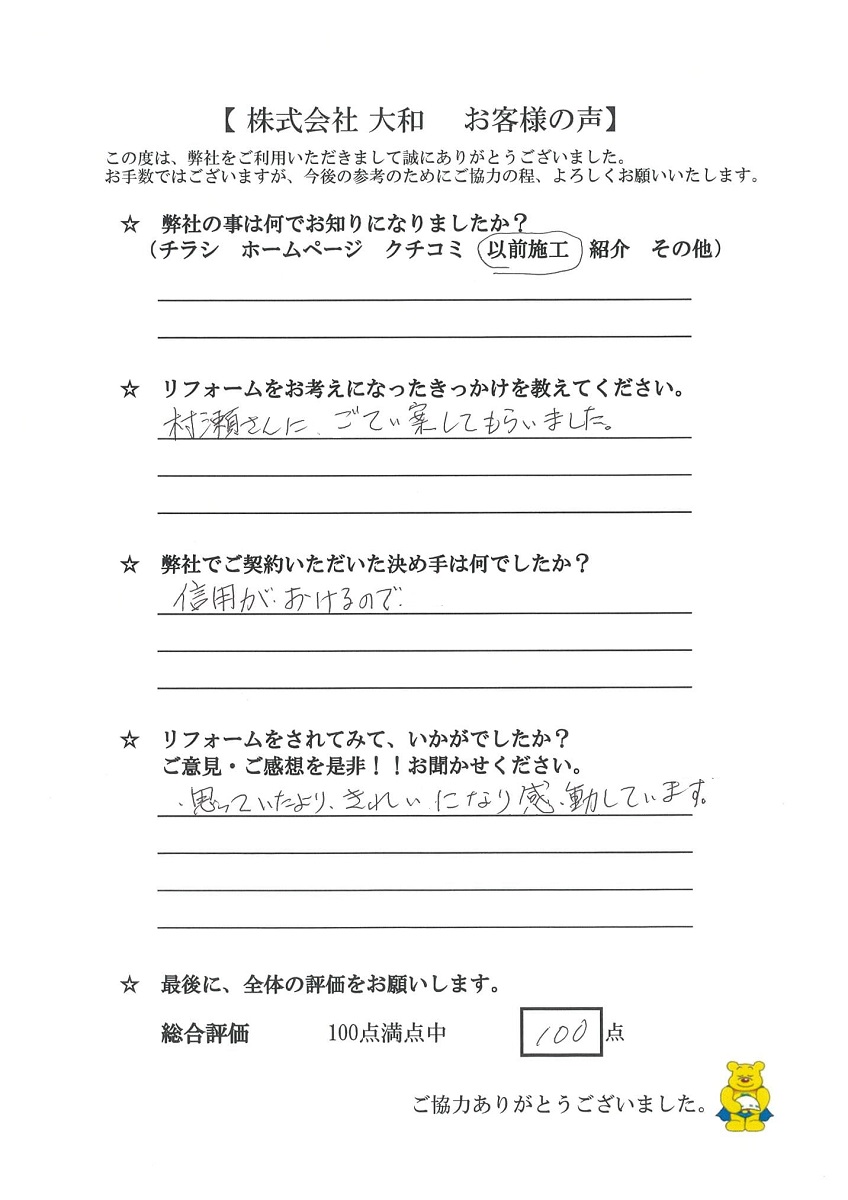 【 株式会社 大和　お客様の声】
この度は、弊社をご利用いただきまして誠にありがとうございました。
お手数ではございますが、今後の参考のためにご協力の程、よろしくお願いいたします。
☆　弊社の事は何でお知りになりましたか？
（チラシ　ホームページ　クチコミ　以前施工　紹介　その他）
☆　リフォームをお考えになったきっかけを教えてください。
村瀬さんに、ごてい案してもらいました。
☆　弊社でご契約いただいた決め手は何でしたか？
信用が、おけるので、
☆　リフォームをされてみて、いかがでしたか？
ご意見・ご感想を是非！！お聞かせください。
・思っていたより、きれいになり感動しています。
☆　最後に、全体の評価をお願いします。
総合評価　100点満点中　100 点
ご協力ありがとうございました。